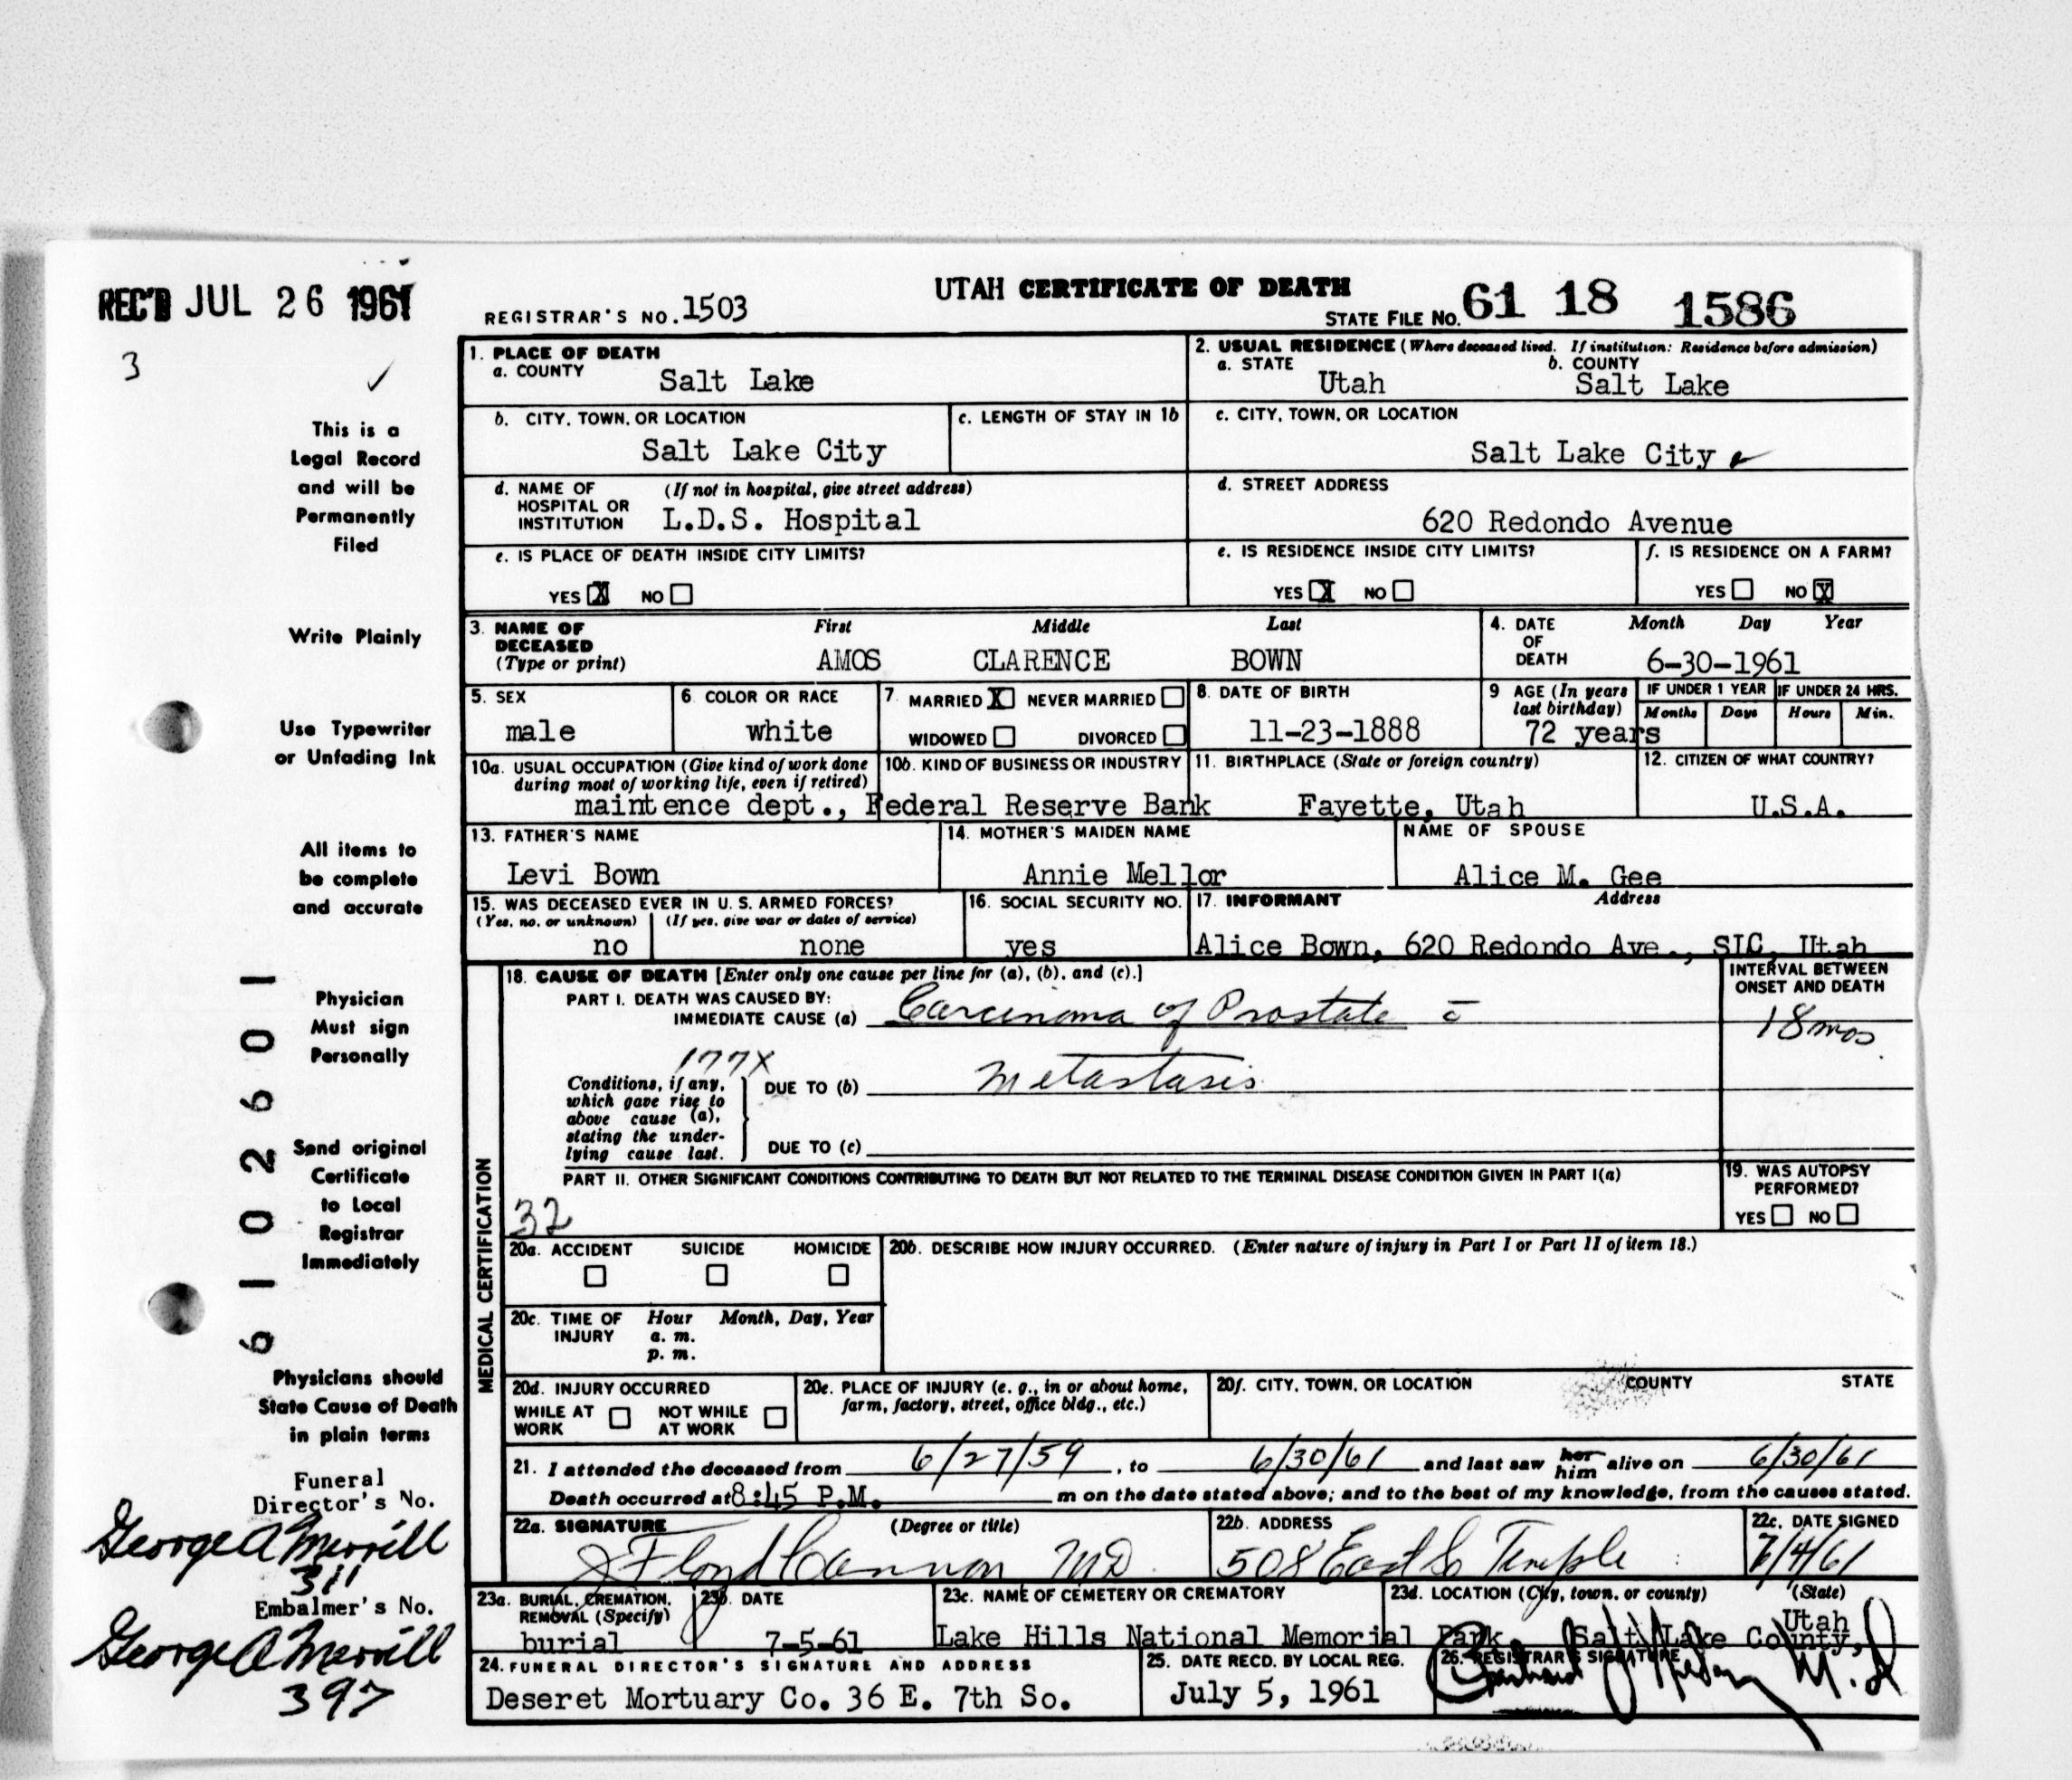 REC'D JUL 26 1961
UTAH CERTIFICATE OF DEATH
REGISTRAR'S NO. 1503
STATE FILE NO. 61 18 1586
3
1. PLACE OF DEATH
a. COUNTY
Salt Lake
2. USUAL RESIDENCE (Where deceased lived. If institution: Residence before admission)
a. STATE
Utah
b. COUNTY
Salt Lake
b. CITY, TOWN, OR LOCATION
Salt Lake City
c. LENGTH OF STAY IN 1b
c. CITY, TOWN, OR LOCATION
Salt Lake City
d. NAME OF HOSPITAL OR INSTITUTION
(If not in hospital, give street address)
L.D.S. Hospital
d. STREET ADDRESS
620 Redondo Avenue
e. IS PLACE OF DEATH INSIDE CITY LIMITS?
YES X NO
e. IS RESIDENCE INSIDE CITY LIMITS?
YES X NO
f. IS RESIDENCE ON A FARM?
YES NO X
3. NAME OF DECEASED
(Type or print)
First Middle Last
AMOS CLARENCE BOWN
4. DATE OF DEATH
Month Day Year
6-30-1961
5. SEX
male
6 COLOR OR RACE
white
7 MARRIED X NEVER MARRIED
WIDOWED DIVORCED
8. DATE OF BIRTH
11-23-1888
9 AGE (In years last birthday)
72 years
IF UNDER 1 YEAR
Months Days
IF UNDER 24 HRS.
Hours Min.
10a. USUAL OCCUPATION (Give kind of work done
during most of working life, even if retired)
10b. KIND OF BUSINESS OR INDUSTRY
maintence dept., Federal Reserve Bank
11. BIRTHPLACE (State or foreign country)
Fayette, Utah
12. CITIZEN OF WHAT COUNTRY?
U.S.A.
13. FATHER'S NAME
Levi Bown
14. MOTHER'S MAIDEN NAME
Annie Mellor
NAME OF SPOUSE
Alice M. Gee
15. WAS DECEASED EVER IN U. S. ARMED FORCES?
(Yes, no, or unknown) (If yes, give war or dates of service)
no none
16. SOCIAL SECURITY NO.
yes
17. INFORMANT Address
Alice Bown, 620 Redondo Ave., SLC, Utah
MEDICAL CERTIFICATION
18. CAUSE OF DEATH [Enter only one cause per line for (a), (b), and (c).]
INTERVAL BETWEEN
ONSET AND DEATH
PART I. DEATH WAS CAUSED BY:
IMMEDIATE CAUSE (a) Carcinoma of Prostate c̄
18 mos
177X
Conditions, if any,
which gave rise to
above cause (a),
stating the under-
lying cause last.
DUE TO (b) Metastasis
DUE TO (c)
PART II. OTHER SIGNIFICANT CONDITIONS CONTRIBUTING TO DEATH BUT NOT RELATED TO THE TERMINAL DISEASE CONDITION GIVEN IN PART I(a)
32
19. WAS AUTOPSY
PERFORMED?
YES NO
20a. ACCIDENT SUICIDE HOMICIDE
20b. DESCRIBE HOW INJURY OCCURRED. (Enter nature of injury in Part I or Part II of item 18.)
20c. TIME OF INJURY
Hour Month, Day, Year
a. m.
p. m.
20d. INJURY OCCURRED
WHILE AT WORK NOT WHILE AT WORK
20e. PLACE OF INJURY (e. g., in or about home,
farm, factory, street, office bldg., etc.)
20f. CITY, TOWN, OR LOCATION COUNTY STATE
21. I attended the deceased from 6/27/59, to 6/30/61 and last saw her him alive on 6/30/61
Death occurred at 8:45 P.M. m on the date stated above; and to the best of my knowledge, from the causes stated.
22a. SIGNATURE (Degree or title)
J Floyd Cannon MD
22b. ADDRESS
508 East So Temple
22c. DATE SIGNED
7/4/61
23a. BURIAL, CREMATION,
REMOVAL (Specify)
burial
23b. DATE
7-5-61
23c. NAME OF CEMETERY OR CREMATORY
Lake Hills National Memorial Park
23d. LOCATION (City, town, or county) (State)
Salt Lake County, Utah
24. FUNERAL DIRECTOR'S SIGNATURE AND ADDRESS
Deseret Mortuary Co. 36 E. 7th So.
25. DATE RECD. BY LOCAL REG.
July 5, 1961
26. REGISTRAR'S SIGNATURE
M.D
This is a
Legal Record
and will be
Permanently
Filed
Write Plainly
Use Typewriter
or Unfading Ink
All items to
be complete
and accurate
Physician
Must sign
Personally
Send original
Certificate
to Local
Registrar
Immediately
Physicians should
State Cause of Death
in plain terms
61 02601
Funeral
Director's No.
George A Merrill
311
Embalmer's No.
George A Merrill
397